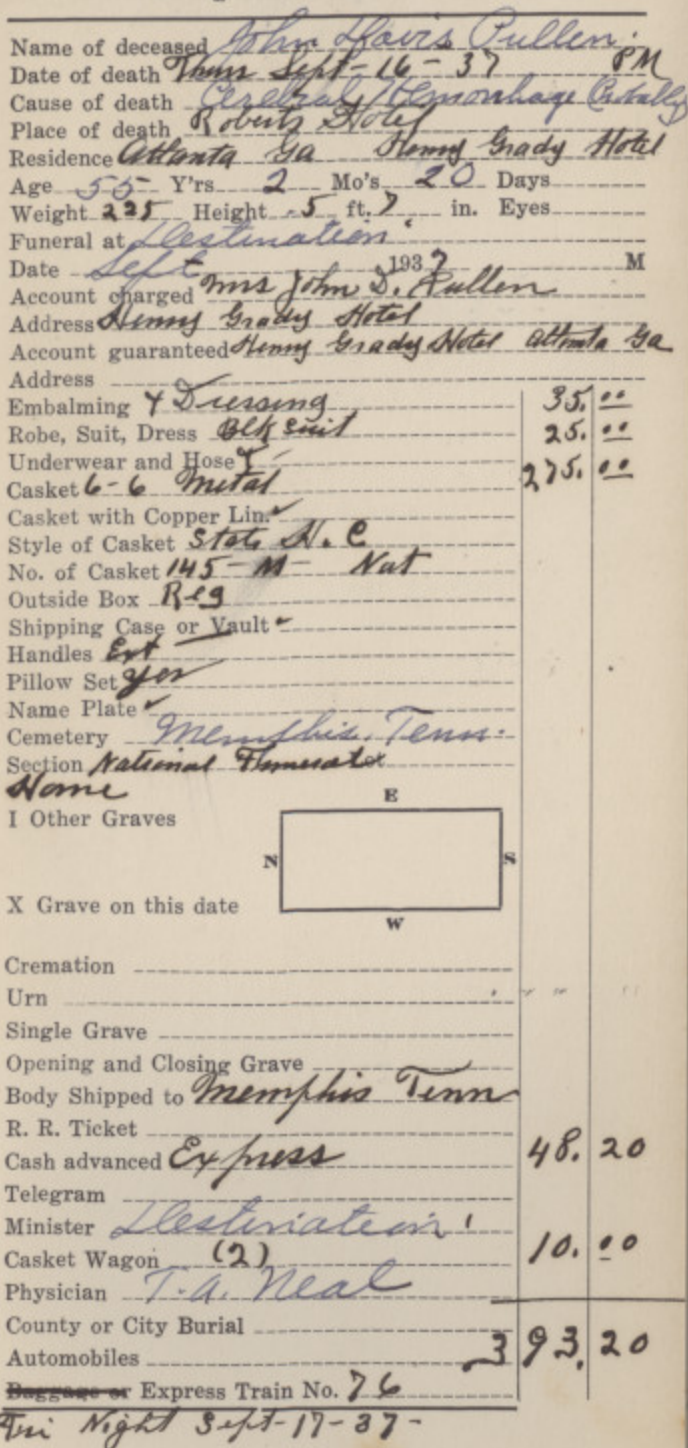 Name of deceased John Davis Pullen.
Date of death Thurs Sept-16-37 PM
Cause of death Cerebral Hemorrhage
Place of death Roberts Hotel
Residence Atlanta Ga Henry Grady Hotel
Age 55 Y'rs. 2 Mo's 20 Days
Weight 225 Height 5 ft. 7 in. Eyes
Funeral at Destination
Date Sept 1937 M
Account charged Mrs John D. Pullen
Address Henry Grady Hotel
Account guaranteed Henry Grady Hotel Atlanta Ga
Address
Embalming & Dressing 35.00
Robe, Suit, Dress Blk Suit 25.00
Underwear and Hose ✓
Casket 6-6 Metal 275.00
Casket with Copper Lin. ✓
Style of Casket State H. C
No. of Casket 145-M- Nat
Outside Box Reg
Shipping Case or Vault ✓
Handles Ext
Pillow Set Yes
Name Plate ✓
Cemetery Memphis, Tenn.
Section National Funeral
Home
E
I Other Graves
N S
X Grave on this date
W
Cremation
Urn
Single Grave
Opening and Closing Grave
Body Shipped to Memphis Tenn
R. R. Ticket
Cash advanced Express 48.20
Telegram
Minister Destination
Casket Wagon (2) 10.00
Physician T.A. Neal
County or City Burial
Automobiles 393.20
Baggage or Express Train No. 76
Fri Night Sept-17-37-